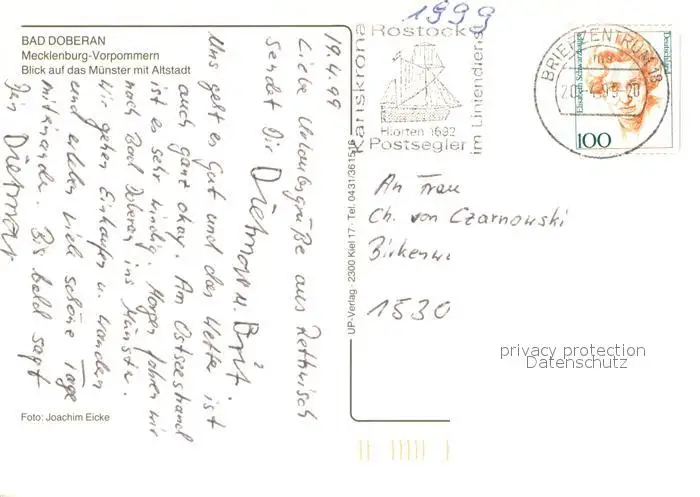 BAD DOBERAN
Mecklenburg-Vorpommern
Blick auf das Münster mit Altstadt
19.4.99
Liebe Urlaubsgrüße aus Rethwisch
sendet Dir Dietmar u. Brit
Uns geht es Gut und das Wetter ist
auch ganz okay. Am Ostseestrand
ist es sehr windig. Morgen fahren wir
nach Bad Doberan ins Münster.
Wir gehen Einkaufen u. Wandern
und erleben viele schöne Tage
miteinander. Bis bald sagt
Dein Dietmar
Foto: Joachim Eicke
UP-Verlag · 2300 Kiel 17 · Tel. 0431/3615
1999
Rostock
Karlskrona
Hiorten 1692
Postsegler
im Liniendienst
BRIEFZENTRUM 18
20
Deutschland
Elisabeth Schwarzhaupt
100
An Frau
Ch. von Czarnowski
1530
privacy protection
Datenschutz